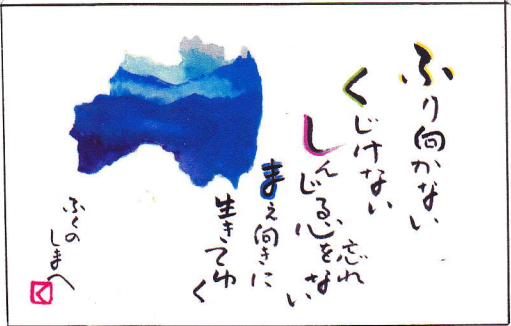 ふり向かない
くじけない
しんじる心を忘れない
まえ向きに
生きてゆく
ふくの
しまへ
く